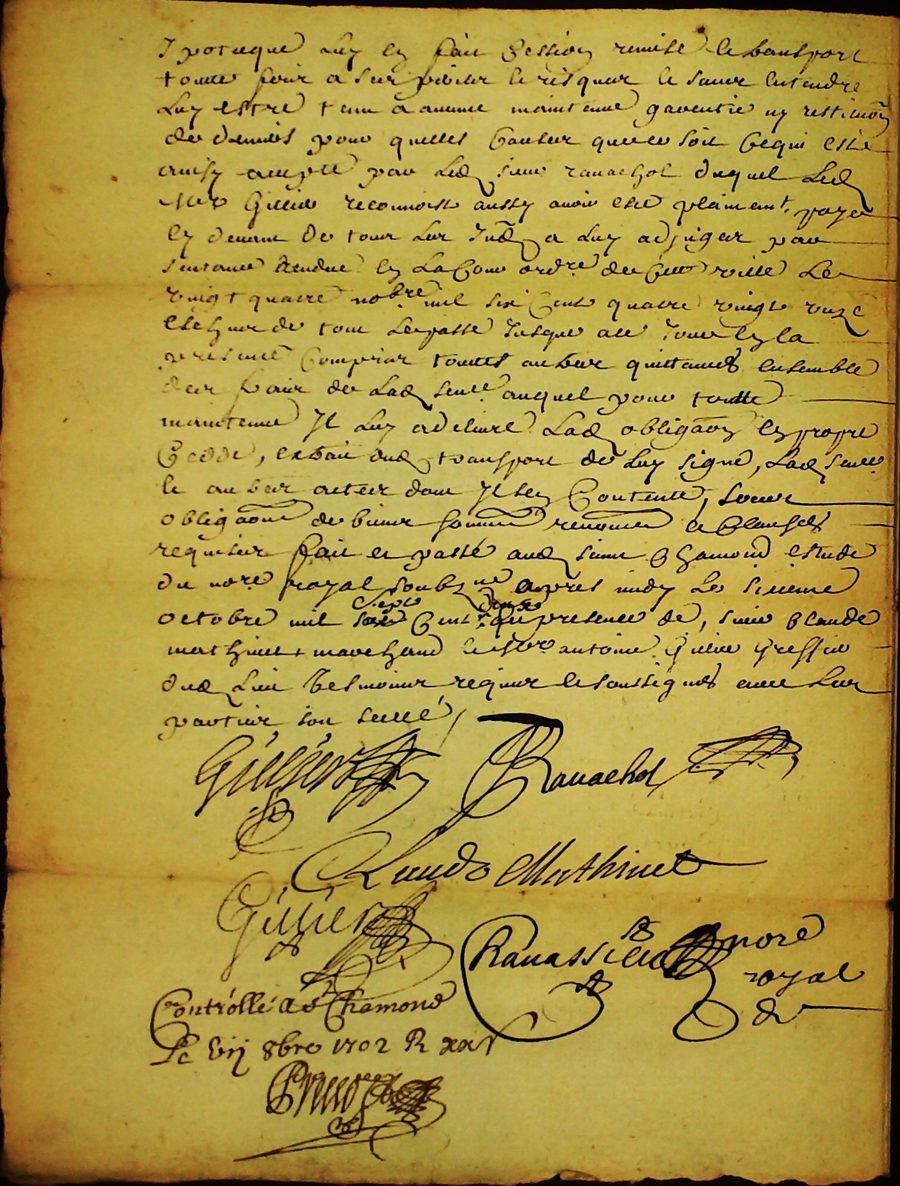 Ipoteque luy en fait cession remise et transport
toutte foix a ses perils et risques et sans entendre
luy estre tenu a aucune maintenue garentie ny restituon
de deniers pour quelles causes que ce soit ce qui este
ainsy accepté par led sieur ravachol duquel led
Mre Gillier reconnoist aussy avoir esté plainemt payé
et
sentance rendue en la cour ordre de cette ville le
vingt quatre nobre mil six cent quatre vingt unze
et de tout le passé jusque au jour
presente compris touttes autres quittances ensemble
de lad auquel pour toutte
maintenue Il luy a delivré lad obligaon en propre
cedde, extrait dud transport de luy signé, lad
et autres actes dont Il sen contente, soubs
obligaons de biens soumions renonons et clauses
requises fait et passé aud saint Chamond estude
du nore royal soubzne apres midy le sixieme
octobre mil sept cent deux en presence de, sieur Claude
mathinet marchand et sr antoine Gillier greffier
dud lieu tesmoins requis et soussignés avec les
parties son seellé /
Gillier Ravachol
Claude Mathinet
Gillier
Ravassieu nore
royal
Controllé a St Chamond
Le viij 8bre 1702 R xx s